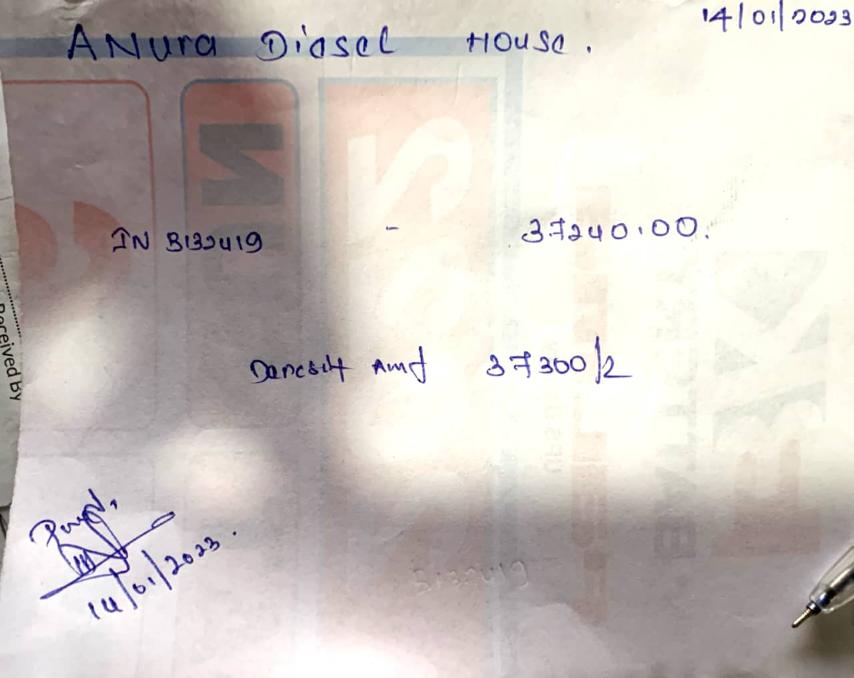 14/01/2023
ANura Diesel House.
IN B132419 - 37240.00.
Deposit Amt 37300/=
14/01/2023.
Received by